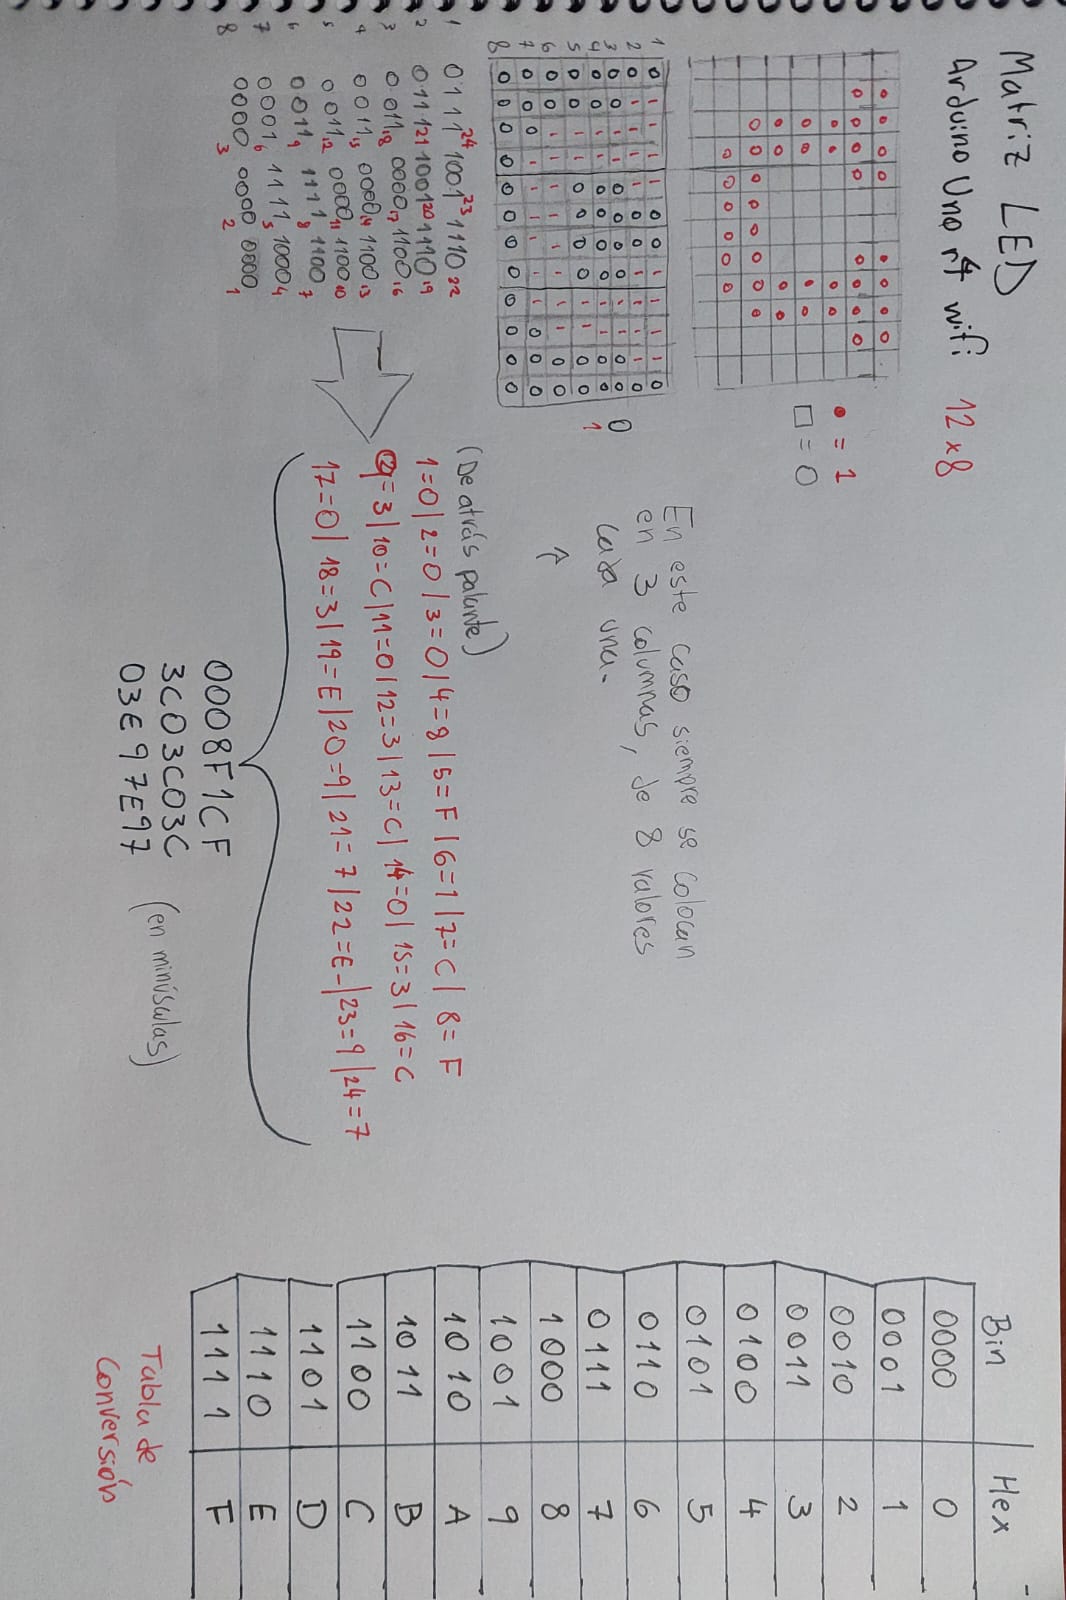 Matriz LED
Arduino Uno r4 wifi 12 x 8
● = 1
□ = 0
1 0 1 1 1 1 0 0 1 1 1 1 0
2 0 1 1 1 1 0 0 1 1 1 1 0
3 0 0 1 1 0 0 0 0 1 1 0 0
4 0 0 1 1 0 0 0 0 1 1 0 0
5 0 0 1 1 0 0 0 0 1 1 0 0
6 0 0 1 1 1 1 1 1 1 1 0 0
7 0 0 0 1 1 1 1 1 1 0 0 0
8 0 0 0 0 0 0 0 0 0 0 0 0
0
1
En este caso siempre se colocan
en 3 columnas, de 8 valores
cada una.
↑
1 0111 24 1001 23 1110 22
2 0111 21 1001 20 1110 19
3 0011 18 0000 17 1100 16
4 0011 15 0000 14 1100 13
5 0011 12 0000 11 1100 10
6 0011 9 1111 8 1100 7
7 0001 6 1111 5 1000 4
8 0000 3 0000 2 0000 1
(De atrás palante)
1=0 | 2=0 | 3=0 | 4=8 | 5=F | 6=1 | 7=C | 8=F
9=3 | 10=C | 11=0 | 12=3 | 13=C | 14=0 | 15=3 | 16=C
17=0 | 18=3 | 19=E | 20=9 | 21=7 | 22=E | 23=9 | 24=7
0008F1CF
3C03C03C
03E97E97
(en minúsculas)
Bin Hex
0000 0
0001 1
0010 2
0011 3
0100 4
0101 5
0110 6
0111 7
1000 8
1001 9
1010 A
1011 B
1100 C
1101 D
1110 E
1111 F
Tabla de
Conversión